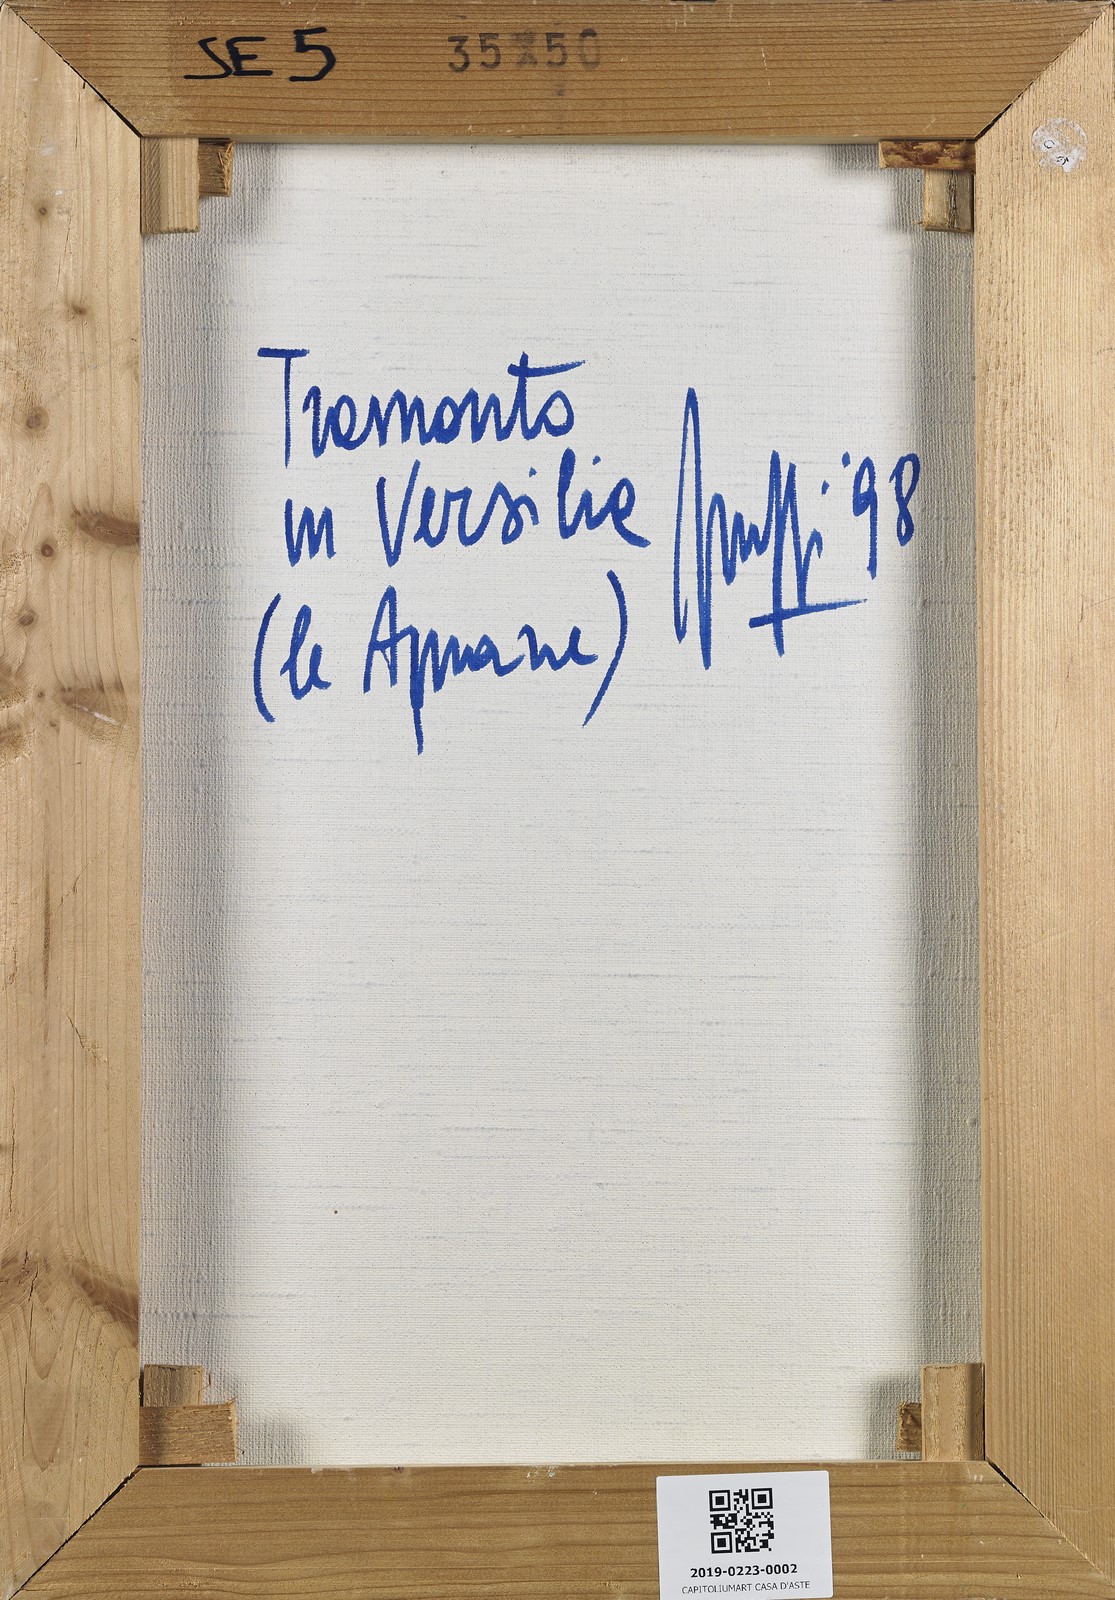 SE 5 35X50
Tramonto
in Versilia
'98
(le Apuane)
2019-0223-0002
CAPITOLIUMART CASA D'ASTE